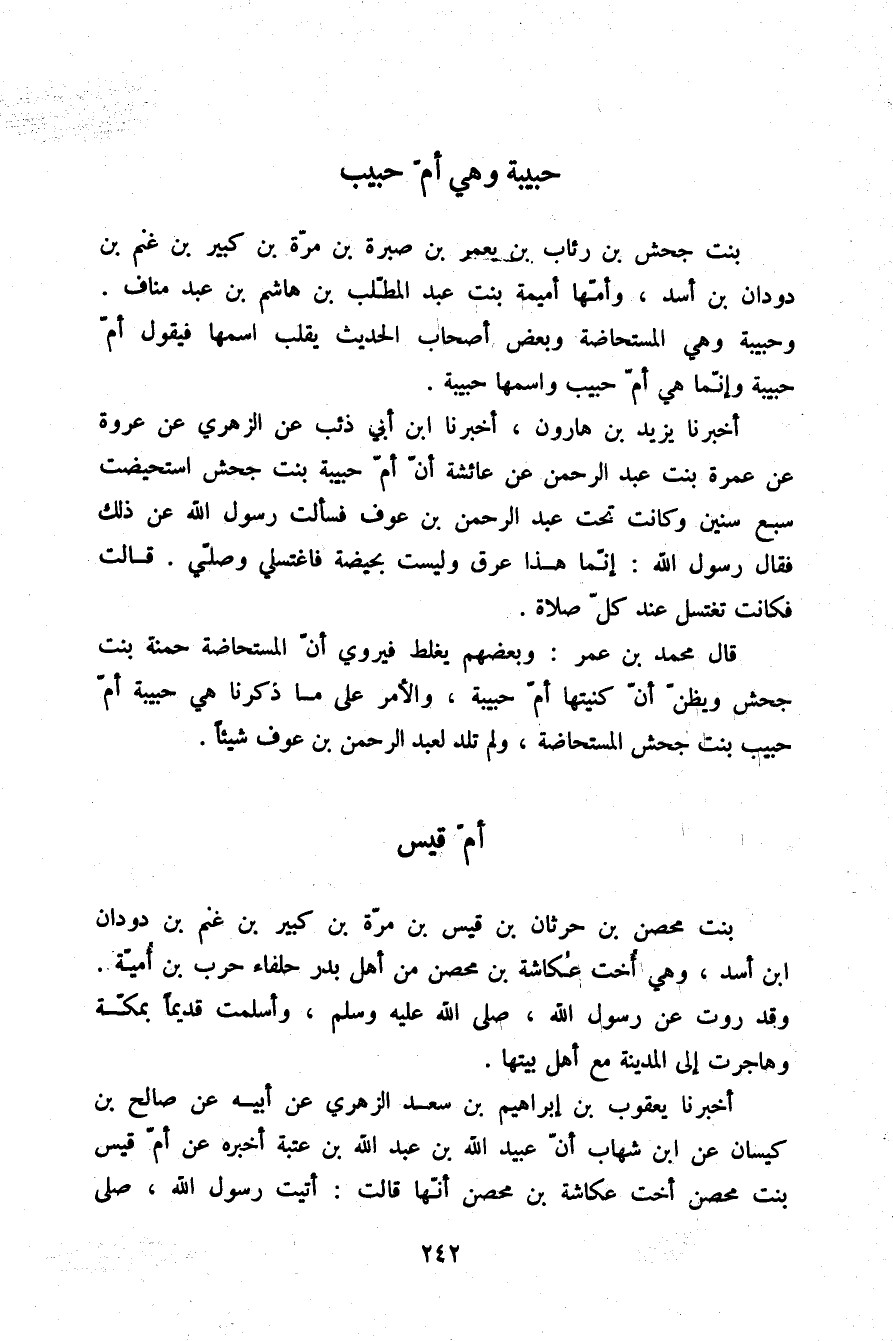 حبيبة وهي أمّ حبيب
بنت جحش بن رئاب بن يعمر بن صبرة بن مرّة بن كبير بن غنم بن
دودان بن أسد ، وأمّها أميمة بنت عبد المطّلب بن هاشم بن عبد مناف .
وحبيبة وهي المستحاضة وبعض أصحاب الحديث يقلب اسمها فيقول أمّ
حبيبة وإنّما هي أمّ حبيب واسمها حبيبة .
أخبرنا يزيد بن هارون ، أخبرنا ابن أبي ذئب عن الزهري عن عروة
عن عمرة بنت عبد الرحمن عن عائشة أنّ أمّ حبيبة بنت جحش استحيضت
سبع سنين وكانت تحت عبد الرحمن بن عوف فسألت رسول الله عن ذلك
فقال رسول الله : إنّما هـذا عرق وليست بحيضة فاغتسلي وصلّي . قـالت
فكانت تغتسل عند كلّ صلاة .
قال محمد بن عمر : وبعضهم يغلط فيروي أنّ المستحاضة حمنة بنت
جحش ويظنّ أنّ كنيتها أمّ حبيبة ، والأمر على مـا ذكرنا هي حبيبة أمّ
حبيب بنت جحش المستحاضة ، ولم تلد لعبد الرحمن بن عوف شيئاً .
أمّ قيس
بنت محصن بن حرثان بن قيس بن مرّة بن كبير بن غنم بن دودان
ابن أسد ، وهي أُخت عُكاشة بن محصن من أهل بدر حلفاء حرب بن أُميّة .
وقد روت عن رسول الله ، صلى الله عليه وسلم ، وأسلمت قديماً بمكّـة
وهاجرت إلى المدينة مع أهل بيتها .
أخبرنا يعقوب بن إبراهيم بن سعـد الزهري عن أبيـه عن صالح بن
كيسان عن ابن شهاب أنّ عبيد الله بن عبد الله بن عتبة أخبره عن أمّ قيس
بنت محصن أخت عكاشة بن محصن أنّها قالت : أتيت رسول الله ، صلى
٢٤٢